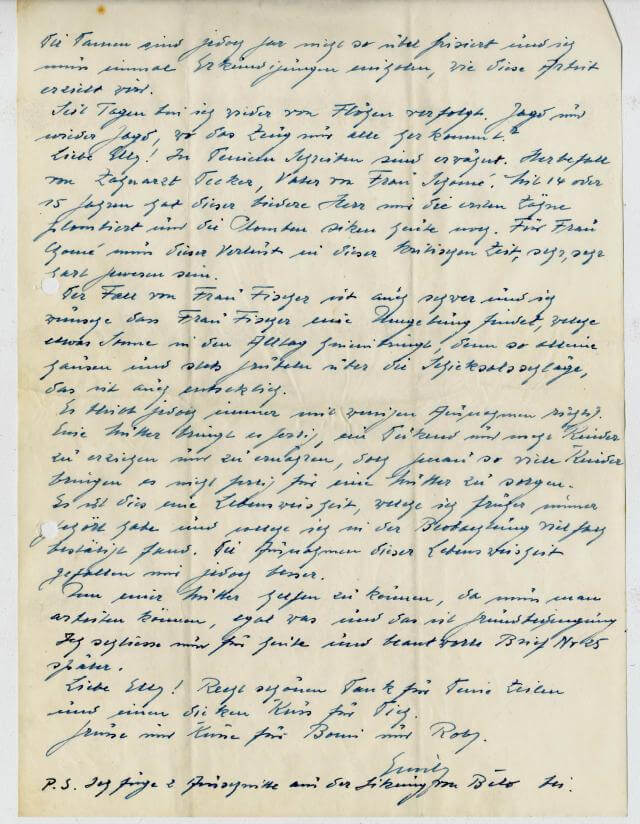 Die Damen sind jedoch gar nicht so übel frisiert und ich
muss einmal Erkundigungen einholen, wie diese Arbeit
erzielt wird.
Seit Tagen bin ich wieder von Flöhen verfolgt. Jagd und
wieder Jagd, wo das Zeug nur alle herkommt?
Liebe Elly! In Deinem Schreiben sind erwähnt. Sterbefall
von Zahnarzt Decker, Vater von Frau Schomé. Mit 14 oder
15 Jahren hat dieser biedere Herr mir die ersten Zähne
plombiert und die Plomben sitzen heute noch. Für Frau
Schomé muss dieser Verlust in dieser kritischen Zeit, sehr, sehr
hart gewesen sein.
Der Fall von Frau Fischer ist auch schwer und ich
wünsche dass Frau Fischer eine Umgebung findet, welche
etwas Sonne in den Alltag hineinbringt, denn so alleine
hausen und stets grübeln über die Schicksalsschläge,
das ist auch entsetzlich.
Es bleibt jedoch immer mit wenigen Ausnahmen richtig.
Eine Mutter bringt es fertig, ein Dutzend und mehr Kinder
zu erziehen und zu ernähren, doch genau so viele Kinder
bringen es nicht fertig für eine Mutter zu sorgen.
Es ist dies eine Lebensweisheit, welche ich früher immer
gehört habe und welche ich in der Beobachtung vielfach
bestätigt fand. Die Ausnahmen dieser Lebensweisheit
gefallen mir jedoch besser.
Um einer Mutter helfen zu können, da muss man
arbeiten können, egal was und das ist Grundbedingung
Ich schliesse nun für heute und beantworte Brief Nr 25
später.
Liebe Elly! Recht schönen Dank für Deine Zeilen
und einen dicken Kuss für Dich.
Grüsse und Küsse für Bomi und Roby.
P.S. Ich füge 2 Ausschnitte aus der Sitzung von bei.